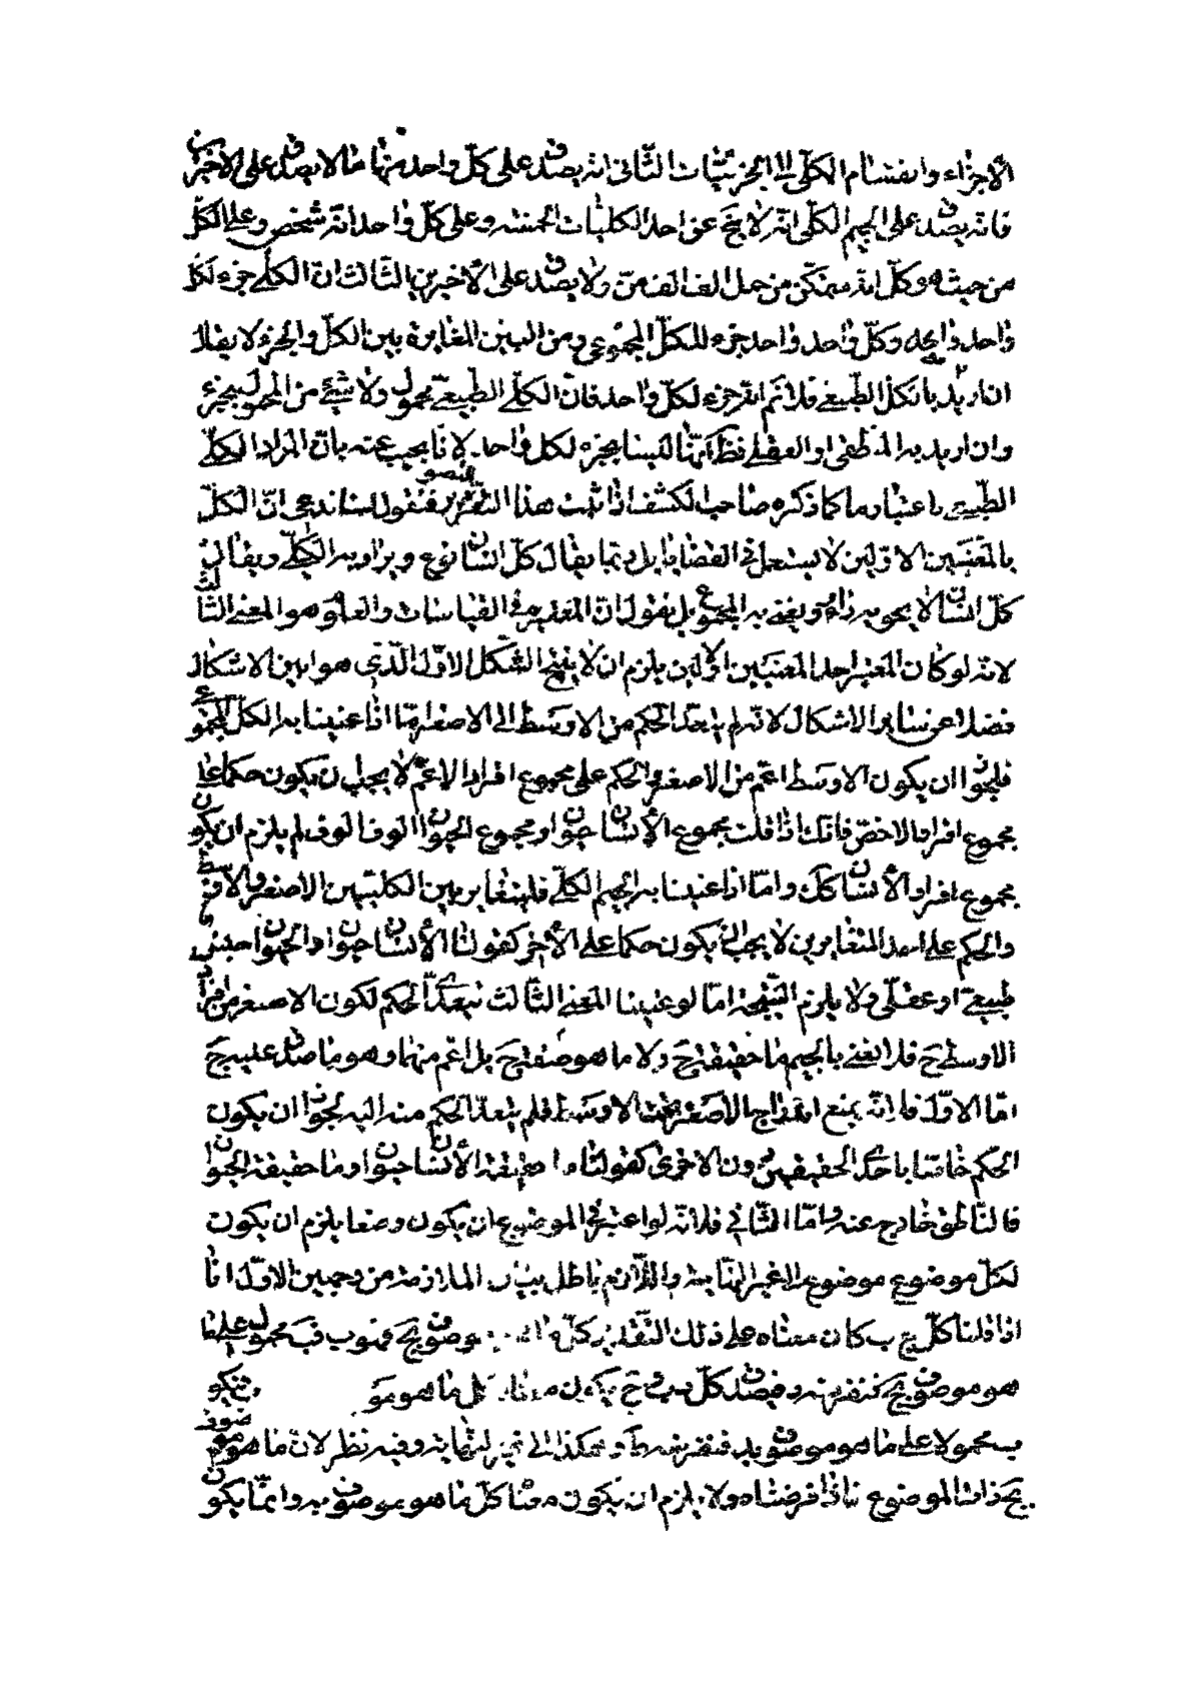 الأجزاء وانقسام الكلّى الى الجزئيّات الثّانى انّه يصدق على كلّ واحد منها ما لا يصدق على الاخيرين
فانه يصدق على الجيم الكلّى انّه لا يخ عن احد الكليّات الخمسة وعلى كلّ واحد انّه شخص وعلى الكلّ
من حيث هو كلّ انّه متمكّن من حمل الف الف منّ ولا يصدق على الأخيرين الثّالث انّ الكلّى جزء لكلّ
واحد واحد وكلّ واحد واحد جزء للكلّ المجموعى ومن البيّن المغايرة بين الكلّ والجزء لا يقال
ان اريد بالكلّ الطّبيعى فلا نم انّه جزء لكلّ واحد فانّ الكلّى الطّبيعىّ محمول ولا شئ من المحمول بجزء
وان اريد به المنطقى او العقلى فظ انّهما ليسا بجزء لكل واحد لانّا نجيب عنه بانّ المراد الكلّى
الطّبيعى باعتبار ما كما ذكره صاحب الكشف اذا ثبت هذا التصوير فنقول لسنا ندعى انّ الكلّ
بالمعنيين الاوّلين لا يستعمل فى القضايا بل ربّما يقال كلّ انسان نوع ويراد به الكلّى ويقال
كلّ انسان لا يحويه دار ويعنى به المجموع بل نقول انّ المعتبر فى القياسات والعلوم هو المعنى الثالث
لانّه لو كان المعتبر احد المعنيين الاوّلين يلزم ان لا ينتج الشّكل الاوّل الّذى هو ابين الاشكال
فضلا عن سائر الاشكال لانّه لم يتعدّ الحكم من الاوسط الى الاصغر امّا اذا عنينا به الكلّ المجموعى
فلجواز ان يكون الاوسط اعمّ من الاصغر والحكم على مجموع افراد الاعمّ لا يجب ان يكون حكما على
مجموع افراد الاخصّ فانّك اذا قلت مجموع الأنسان حيوان ومجموع الحيوان الوف الوف لم يلزم ان يكون
مجموع افراد الأنسان كك وامّا اذا عنينا به الجيم الكلّى فليتغاير بين الكليتين الاصغر والاوسط
والحكم على احد المتغايرين لا يجب ان يكون حكما على الأخر كقولنا الأنسان حيوان والحيوان جنس
طبيعىّ او عقلى ولا يلزم النّتيجة امّا لو عنينا المعنى الثّالث فيتعدّى الحكم لكون الاصغر من افراد
الاوسط ح فلا نعنى بالجيم ما حقيقته ج ولا ما هو صفته ج بل اعمّ منهما وهو ما صدق عليه ج
امّا الاوّل فانّه يمنع اندراج الاصغر تحت الاوسط فلم يتعدّ الحكم منه اليه لجواز ان يكون
الحكم خاصّا باحدى الحقيقتين دون الاخرى كقولنا ما حقيقة الأنسان حيوان وما حقيقة الحيوان
فالنّاطق خارج عنه وامّا الثّانى فلانّه لو اعتبر فى الموضوع ان يكون وصفا يلزم ان يكون
لكلّ موضوع موضوع لا غير النّهاية واللّازم باطل بيان الملازمة من وجهين الاوّل انّا
اذا قلنا كلّ ج ب كان معناه على ذلك التّقدير كلّ موصوف بج فهو ب فب محمول على ما
هو موصوف بج فنفرضه د فيصدق كلّ د ب وح يكون معناه كل ما هو مو فيكون
ب محمولا على ما هو موصوف بد فنفرضه ط وهكذا الى غير النهاية وفيه نظر لانّ ما هو موصوف
بج ذات الموضوع فاذا فرضناه د لا يلزم ان يكون معنا كلّ ما هو موصوف به وانّما يكون